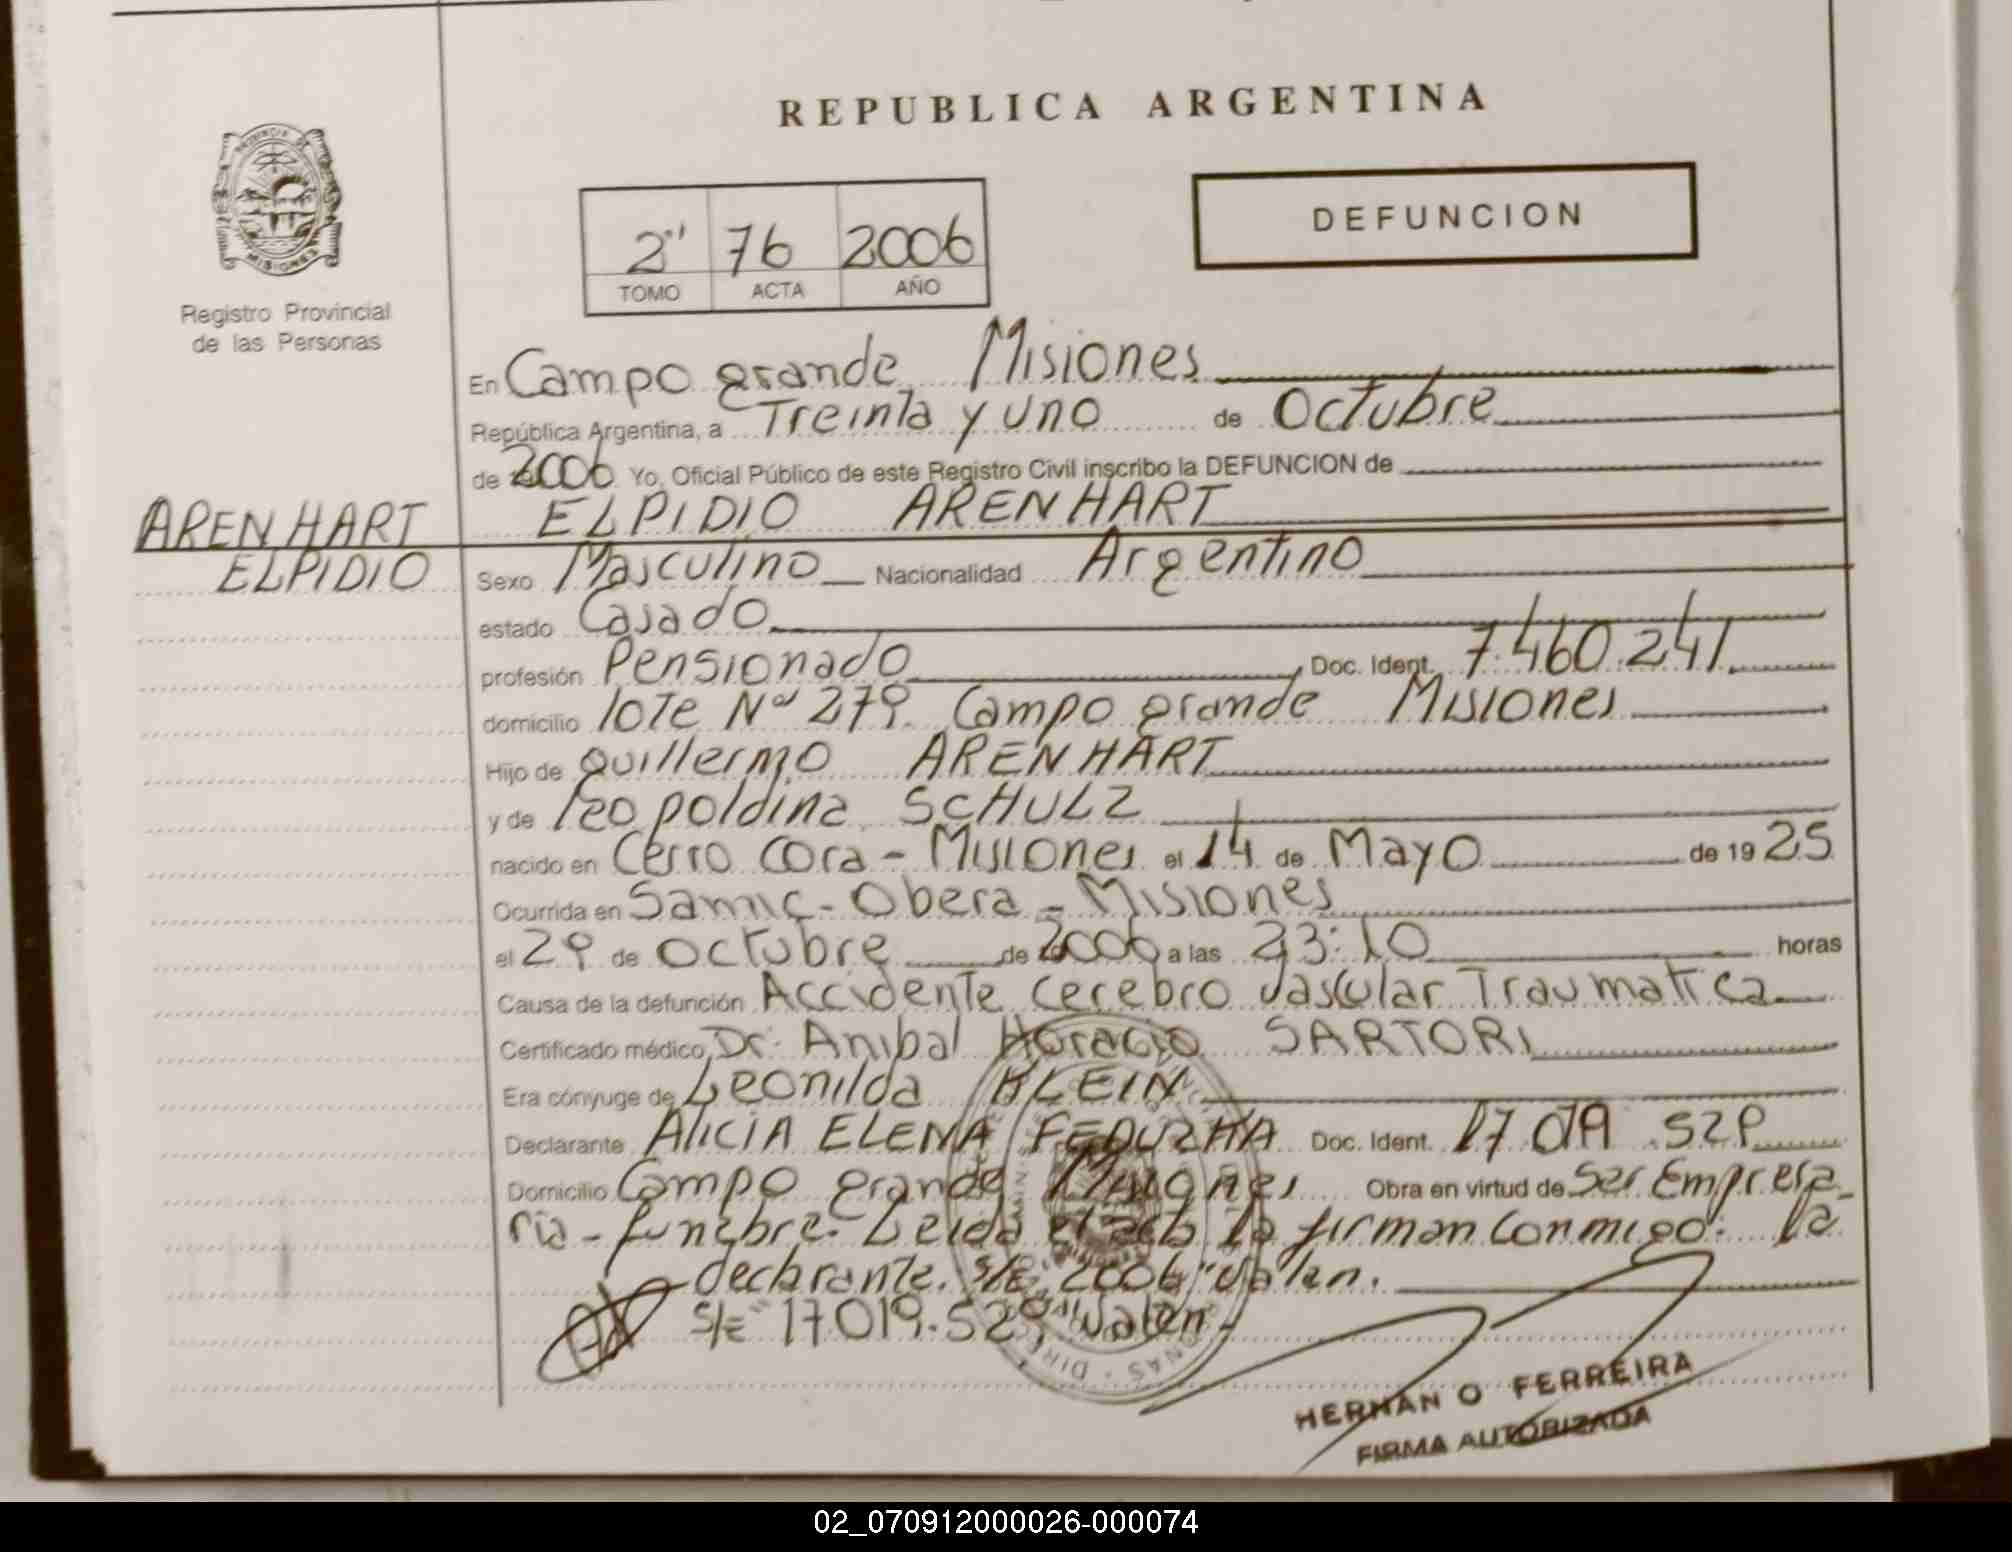 REPUBLICA ARGENTINA
PROVINCIA DE
MISIONES
Registro Provincial
de las Personas
2º" 76 2006
TOMO ACTA AÑO
DEFUNCION
En Campo grande, Misiones
República Argentina, a Treinta y uno de Octubre
de 2006 Yo, Oficial Público de este Registro Civil inscribo la DEFUNCION de
ARENHART ELPIDIO ARENHART
ELPIDIO Sexo Masculino Nacionalidad Argentino
estado Casado
profesión Pensionado Doc. Ident. 7.460.241
domicilio lote Nº 279. Campo grande Misiones
Hijo de guillermo ARENHART
y de leopoldina SCHULZ
nacido en Cerro Cora - Misiones el 14 de Mayo de 1925
Ocurrida en Samic - Obera - Misiones
el 29 de Octubre de 2006 a las 23:10 horas
Causa de la defunción Accidente cerebro vascular Traumatica
Certificado médico, Dr. Anibal Horacio SARTORI
Era cónyuge de Leonilda KLEIN
Declarante ALICIA ELENA Doc. Ident. 17 019 529
Domicilio Campo grande Misiones Obra en virtud de Ser Empresa-
ria - funebre. Leida el acta la firman conmigo: la
declarante. S/E "2006" Valen.
S/E "17.019.529" Valen -
HERNAN O FERREIRA
FIRMA AUTORIZADA
02_070912000026-000074